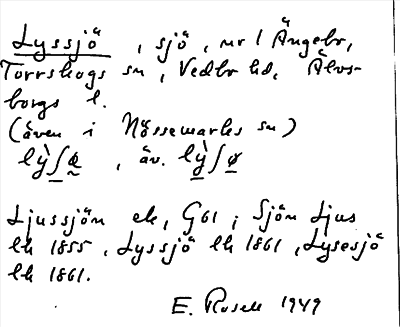 Lyssjö, sjö, nr 1 Ängebr,
Torrskogs sn, Vedbo hd, Älvs-
borgs l.
(även i Nössemarks sn)
lỳʃø̱, äv. lỳ̱ʃø̱
Ljussjön ek, G61; Sjön Ljus
lk 1855, Lyssjö lk 1861, Lysesjö
lk 1861.
E. Rosell 1949